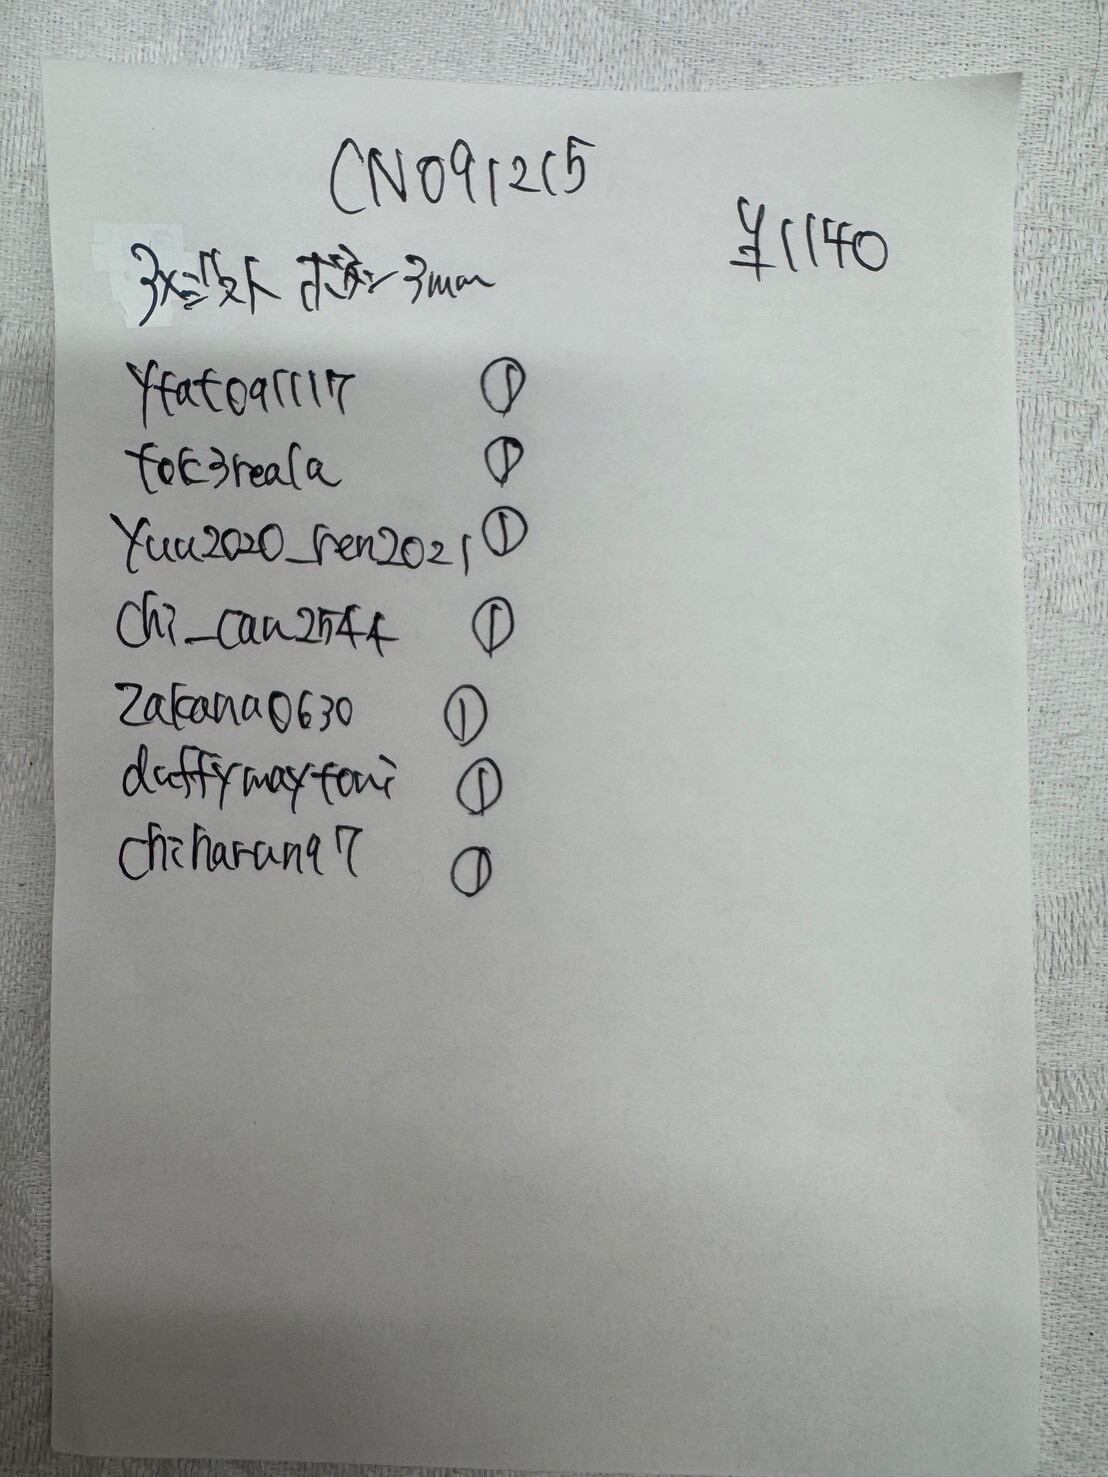 CN091215
¥1140
3mm
Ytat091117 ①
tok3reala ①
Yuu2020_ren2021 ①
chi_can2544 ①
Zakana0630 ①
duffymaytoni ①
chiharun97 ①